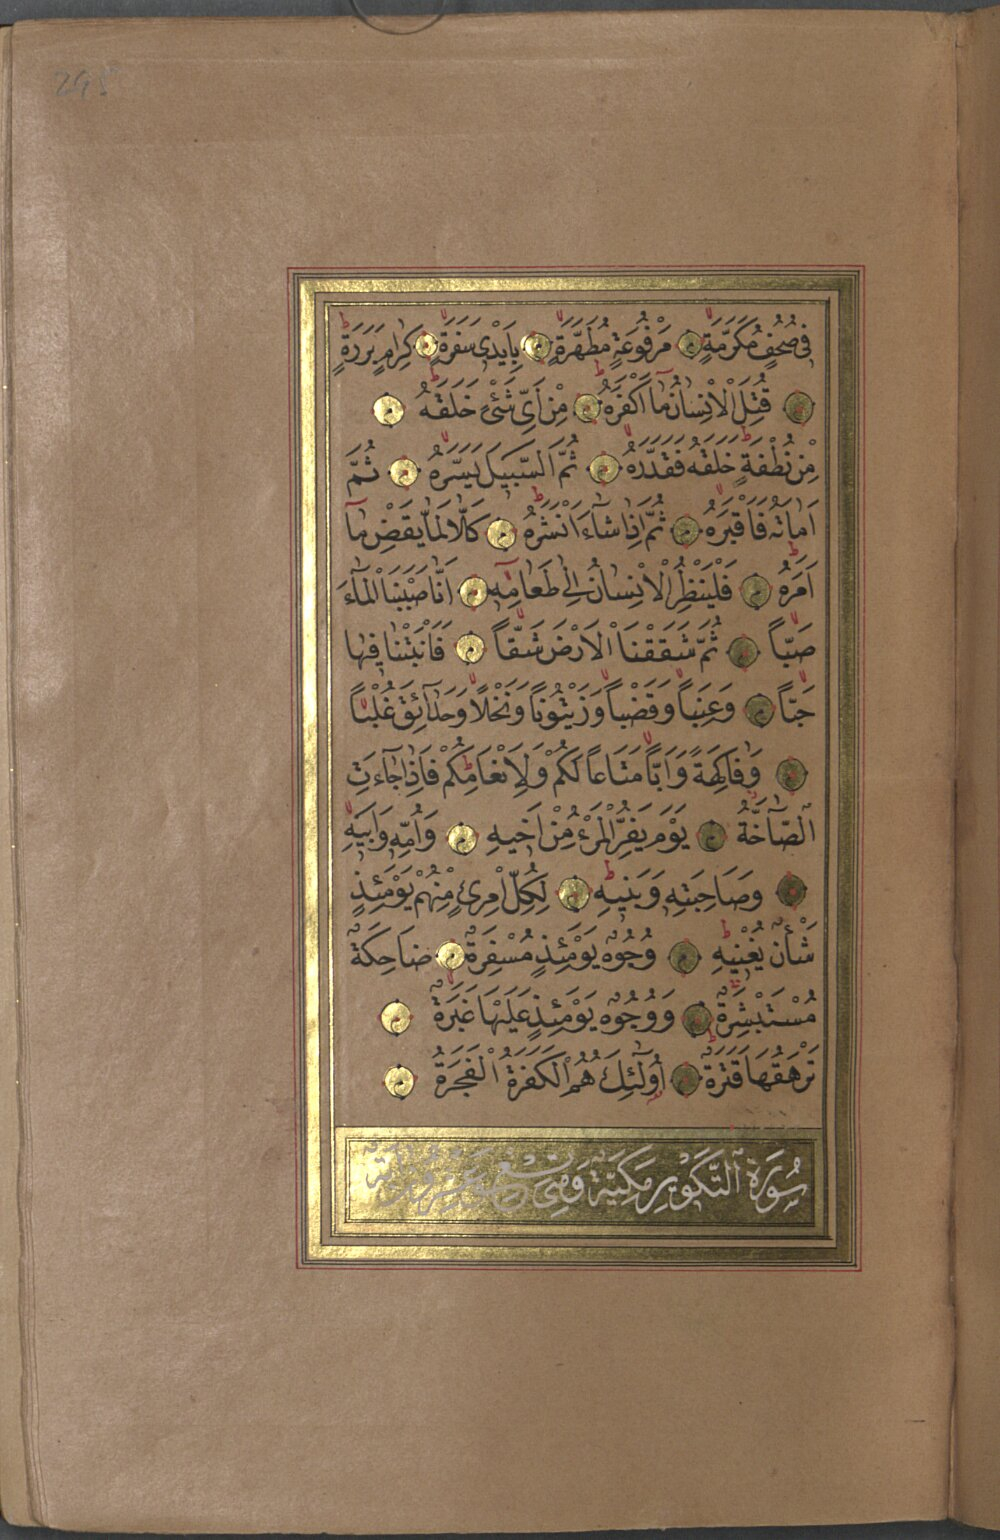 295
فِى صُحُفٍ مُكَرَّمَةٍ مَرْفُوعَةٍ مُطَهَّرَةٍ بِاَيْدِى سَفَرَةٍ كِرَامٍ بَرَرَةٍ
قُتِلَ الْاِنْسَانُ مَٓا اَكْفَرَهُ مِنْ اَىِّ شَىْءٍ خَلَقَهُ
مِنْ نُطْفَةٍ خَلَقَهُ فَقَدَّرَهُ ثُمَّ السَّبِيلَ يَسَّرَهُ ثُمَّ
اَمَاتَهُ فَاَقْبَرَهُ ثُمَّ اِذَا شَٓاءَ اَنْشَرَهُ كَلَّا لَمَّا يَقْضِ مَٓا
اَمَرَهُ فَلْيَنْظُرِ الْاِنْسَانُ اِلٰى طَعَامِهِ اَنَّا صَبَبْنَا الْمَٓاءَ
صَبّاً ثُمَّ شَقَقْنَا الْاَرْضَ شَقّاً فَاَنْبَتْنَا فِيهَا
حَبّاً وَعِنَباً وَقَضْباً وَزَيْتُوناً وَنَخْلاً وَحَدَٓائِقَ غُلْباً
وَفَاكِهَةً وَاَبّاً مَتَاعاً لَكُمْ وَلِاَنْعَامِكُمْ فَاِذَا جَٓاءَتِ
الصَّٓاخَّةُ يَوْمَ يَفِرُّ الْمَرْءُ مِنْ اَخِيهِ وَاُمِّهِ وَاَبِيهِ
وَصَاحِبَتِهِ وَبَنِيهِ لِكُلِّ امْرِئٍ مِنْهُمْ يَوْمَئِذٍ
شَأْنٌ يُغْنِيهِ وُجُوهٌ يَوْمَئِذٍ مُسْفِرَةٌ ضَاحِكَةٌ
مُسْتَبْشِرَةٌ وَوُجُوهٌ يَوْمَئِذٍ عَلَيْهَا غَبَرَةٌ
تَرْهَقُهَا قَتَرَةٌ اُولٰٓئِكَ هُمُ الْكَفَرَةُ الْفَجَرَةُ
سُورَةُ التَّكْوِيرِ مَكِّيَّةٌ وَهِىَ تِسْعٌ وَعِشْرُونَ اٰيَةً